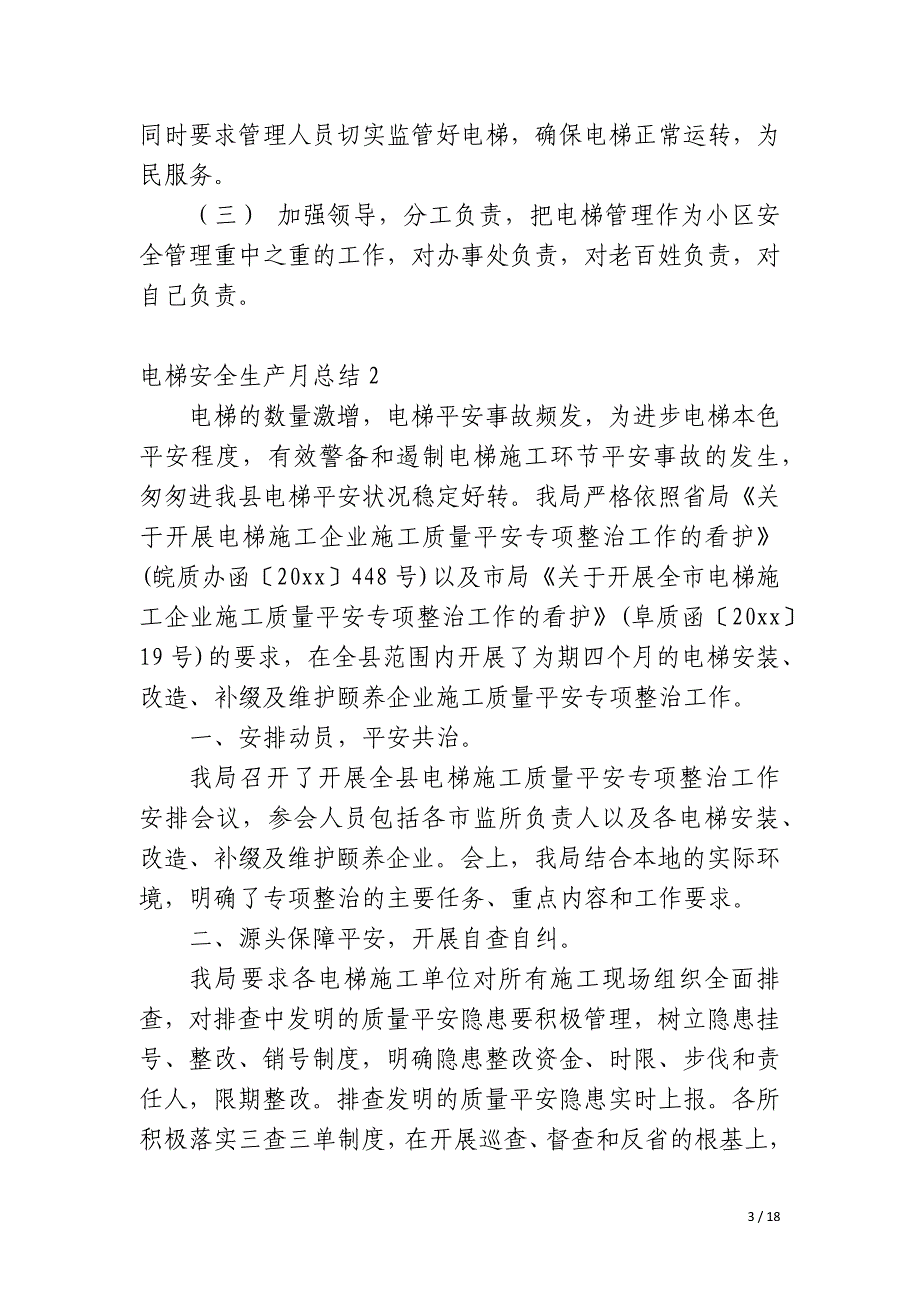 同时要求管理人员切实监管好电梯，确保电梯正常运转，为
民服务。
（三） 加强领导，分工负责，把电梯管理作为小区安
全管理重中之重的工作，对办事处负责，对老百姓负责，对
自己负责。
电梯安全生产月总结2
电梯的数量激增，电梯平安事故频发，为进步电梯本色
平安程度，有效警备和遏制电梯施工环节平安事故的发生，
匆匆进我县电梯平安状况稳定好转。我局严格依照省局《关
于开展电梯施工企业施工质量平安专项整治工作的看护》
(皖质办函〔20xx〕448号)以及市局《关于开展全市电梯施
工企业施工质量平安专项整治工作的看护》(阜质函〔20xx〕
19号)的要求，在全县范围内开展了为期四个月的电梯安装、
改造、补缀及维护颐养企业施工质量平安专项整治工作。
一、安排动员，平安共治。
我局召开了开展全县电梯施工质量平安专项整治工作
安排会议，参会人员包括各市监所负责人以及各电梯安装、
改造、补缀及维护颐养企业。会上，我局结合本地的实际环
境，明确了专项整治的主要任务、重点内容和工作要求。
二、源头保障平安，开展自查自纠。
我局要求各电梯施工单位对所有施工现场组织全面排
查，对排查中发明的质量平安隐患要积极管理，树立隐患挂
号、整改、销号制度，明确隐患整改资金、时限、步伐和责
任人，限期整改。排查发明的质量平安隐患实时上报。各所
积极落实三查三单制度，在开展巡查、督查和反省的根基上，
3 / 18